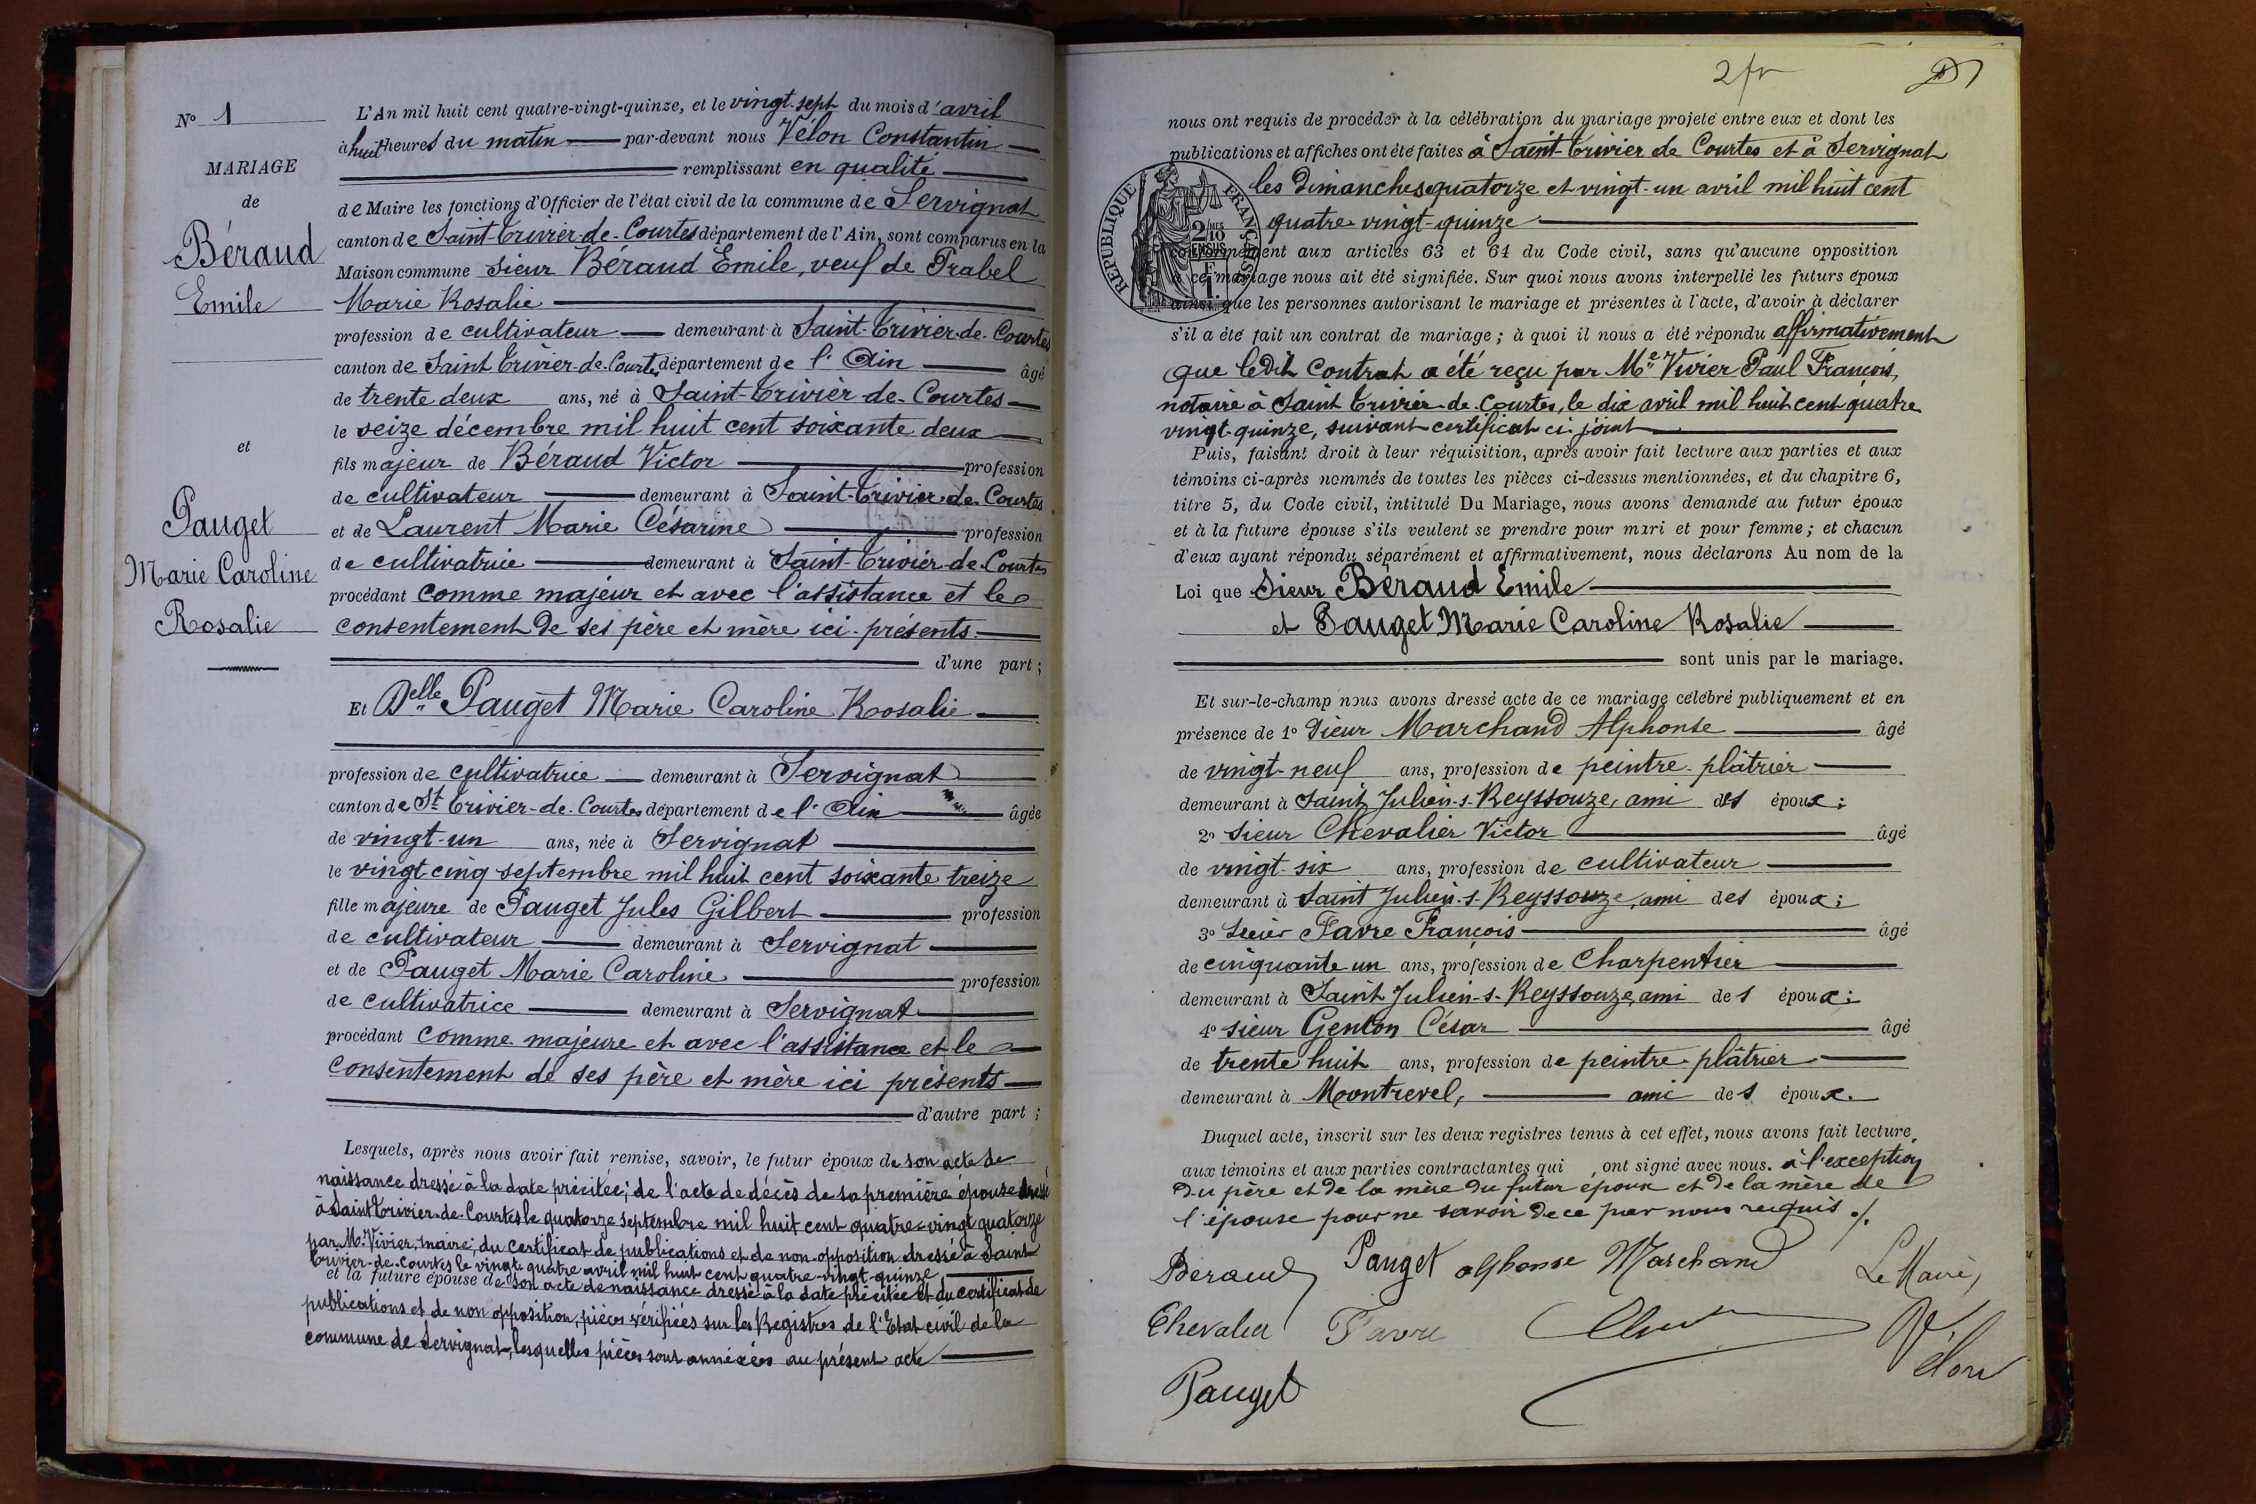 N° 1
MARIAGE
de
Béraud
Emile
et
Pauget
Marie Caroline
Rosalie
L'An mil huit cent quatre-vingt-quinze, et le vingt-sept du mois d'avril
à huit heures du matin par-devant nous Vélon Constantin
remplissant en qualité
de Maire les fonctions d'Officier de l'état civil de la commune de Servignat
canton de Saint-Trivier-de-Courtes département de l'Ain, sont comparus en la
Maison commune sieur Béraud Emile, veuf de Prabel
Marie Rosalie
profession de cultivateur demeurant à Saint-Trivier-de-Courtes
canton de Saint Trivier-de-Courtes département de l'Ain âgé
de trente deux ans, né à Saint-Trivier-de-Courtes
le seize décembre mil huit cent soixante deux
fils majeur de Béraud Victor profession
de cultivateur demeurant à Saint-Trivier-de-Courtes
et de Laurent Marie Césarine profession
de cultivatrice demeurant à Saint-Trivier-de-Courtes
procédant comme majeur et avec l'assistance et le
consentement de ses père et mère ici présents
d'une part;
Et Delle Pauget Marie Caroline Rosalie
profession de cultivatrice demeurant à Servignat
canton de St Trivier-de-Courtes département de l'Ain âgée
de vingt-un ans, née à Servignat
le vingt-cinq septembre mil huit cent soixante treize
fille majeure de Pauget Jules Gilbert profession
de cultivateur demeurant à Servignat
et de Pauget Marie Caroline profession
de cultivatrice demeurant à Servignat
procédant comme majeure et avec l'assistance et le
consentement de ses père et mère ici présents
d'autre part;
Lesquels, après nous avoir fait remise, savoir, le futur époux de son acte de
naissance dressé à la date précitée; de l'acte de décès de sa première épouse dressé
à Saint Trivier-de-Courtes le quatorze septembre mil huit cent quatre-vingt quatorze
par Mr Vivier, maire; du certificat de publications et de non-opposition dressé à Saint
Trivier-de-Courtes le vingt-quatre avril mil huit cent quatre-vingt-quinze
et la future épouse de son acte de naissance dressé à la date précitée et du certificat de
publications et de non opposition, pièces vérifiées sur les Registres de l'Etat civil de la
commune de Servignat, lesquelles pièces sont annexées au présent acte
2 fr
nous ont requis de procéder à la célébration du mariage projeté entre eux et dont les
publications et affiches ont été faites à Saint-Trivier de Courtes et à Servignat
les dimanches quatorze et vingt-un avril mil huit cent
quatre vingt-quinze
conformément aux articles 63 et 64 du Code civil, sans qu'aucune opposition
à ce mariage nous ait été signifiée. Sur quoi nous avons interpellé les futurs époux
ainsi que les personnes autorisant le mariage et présentes à l'acte, d'avoir à déclarer
s'il a été fait un contrat de mariage; à quoi il nous a été répondu affirmativement
que ledit contrat a été reçu par Me Vivier Paul François,
notaire à Saint Trivier-de-Courtes, le dix avril mil huit cent quatre
vingt-quinze, suivant certificat ci-joint
RÉPUBLIQUE FRANÇAISE
2/10 EN SUS
1 F.
Puis, faisant droit à leur réquisition, après avoir fait lecture aux parties et aux
témoins ci-après nommés de toutes les pièces ci-dessus mentionnées, et du chapitre 6,
titre 5, du Code civil, intitulé Du Mariage, nous avons demandé au futur époux
et à la future épouse s'ils veulent se prendre pour mari et pour femme; et chacun
d'eux ayant répondu séparément et affirmativement, nous déclarons Au nom de la
Loi que Sieur Béraud Emile
et Pauget Marie Caroline Rosalie
sont unis par le mariage.
Et sur-le-champ nous avons dressé acte de ce mariage célébré publiquement et en
présence de 1° Sieur Marchand Alphonse âgé
de vingt-neuf ans, profession de peintre-plâtrier
demeurant à Saint Julien-s-Reyssouze, ami des époux;
2° sieur Chevalier Victor âgé
de vingt-six ans, profession de cultivateur
demeurant à Saint Julien-s-Reyssouze, ami des époux;
3° Sieur Favre François âgé
de cinquante un ans, profession de Charpentier
demeurant à Saint Julien-s-Reyssouze, ami des époux;
4° sieur Genton César âgé
de trente huit ans, profession de peintre-plâtrier
demeurant à Montrevel, ami des époux.
Duquel acte, inscrit sur les deux registres tenus à cet effet, nous avons fait lecture,
aux témoins et aux parties contractantes qui ont signé avec nous. à l'exception
du père et de la mère du futur époux et de la mère de
l'épouse pour ne savoir de ce par nous requis ./.
Beraud Pauget alphonse Marchand Le Maire,
Chevalier Favre Vélon
Pauget